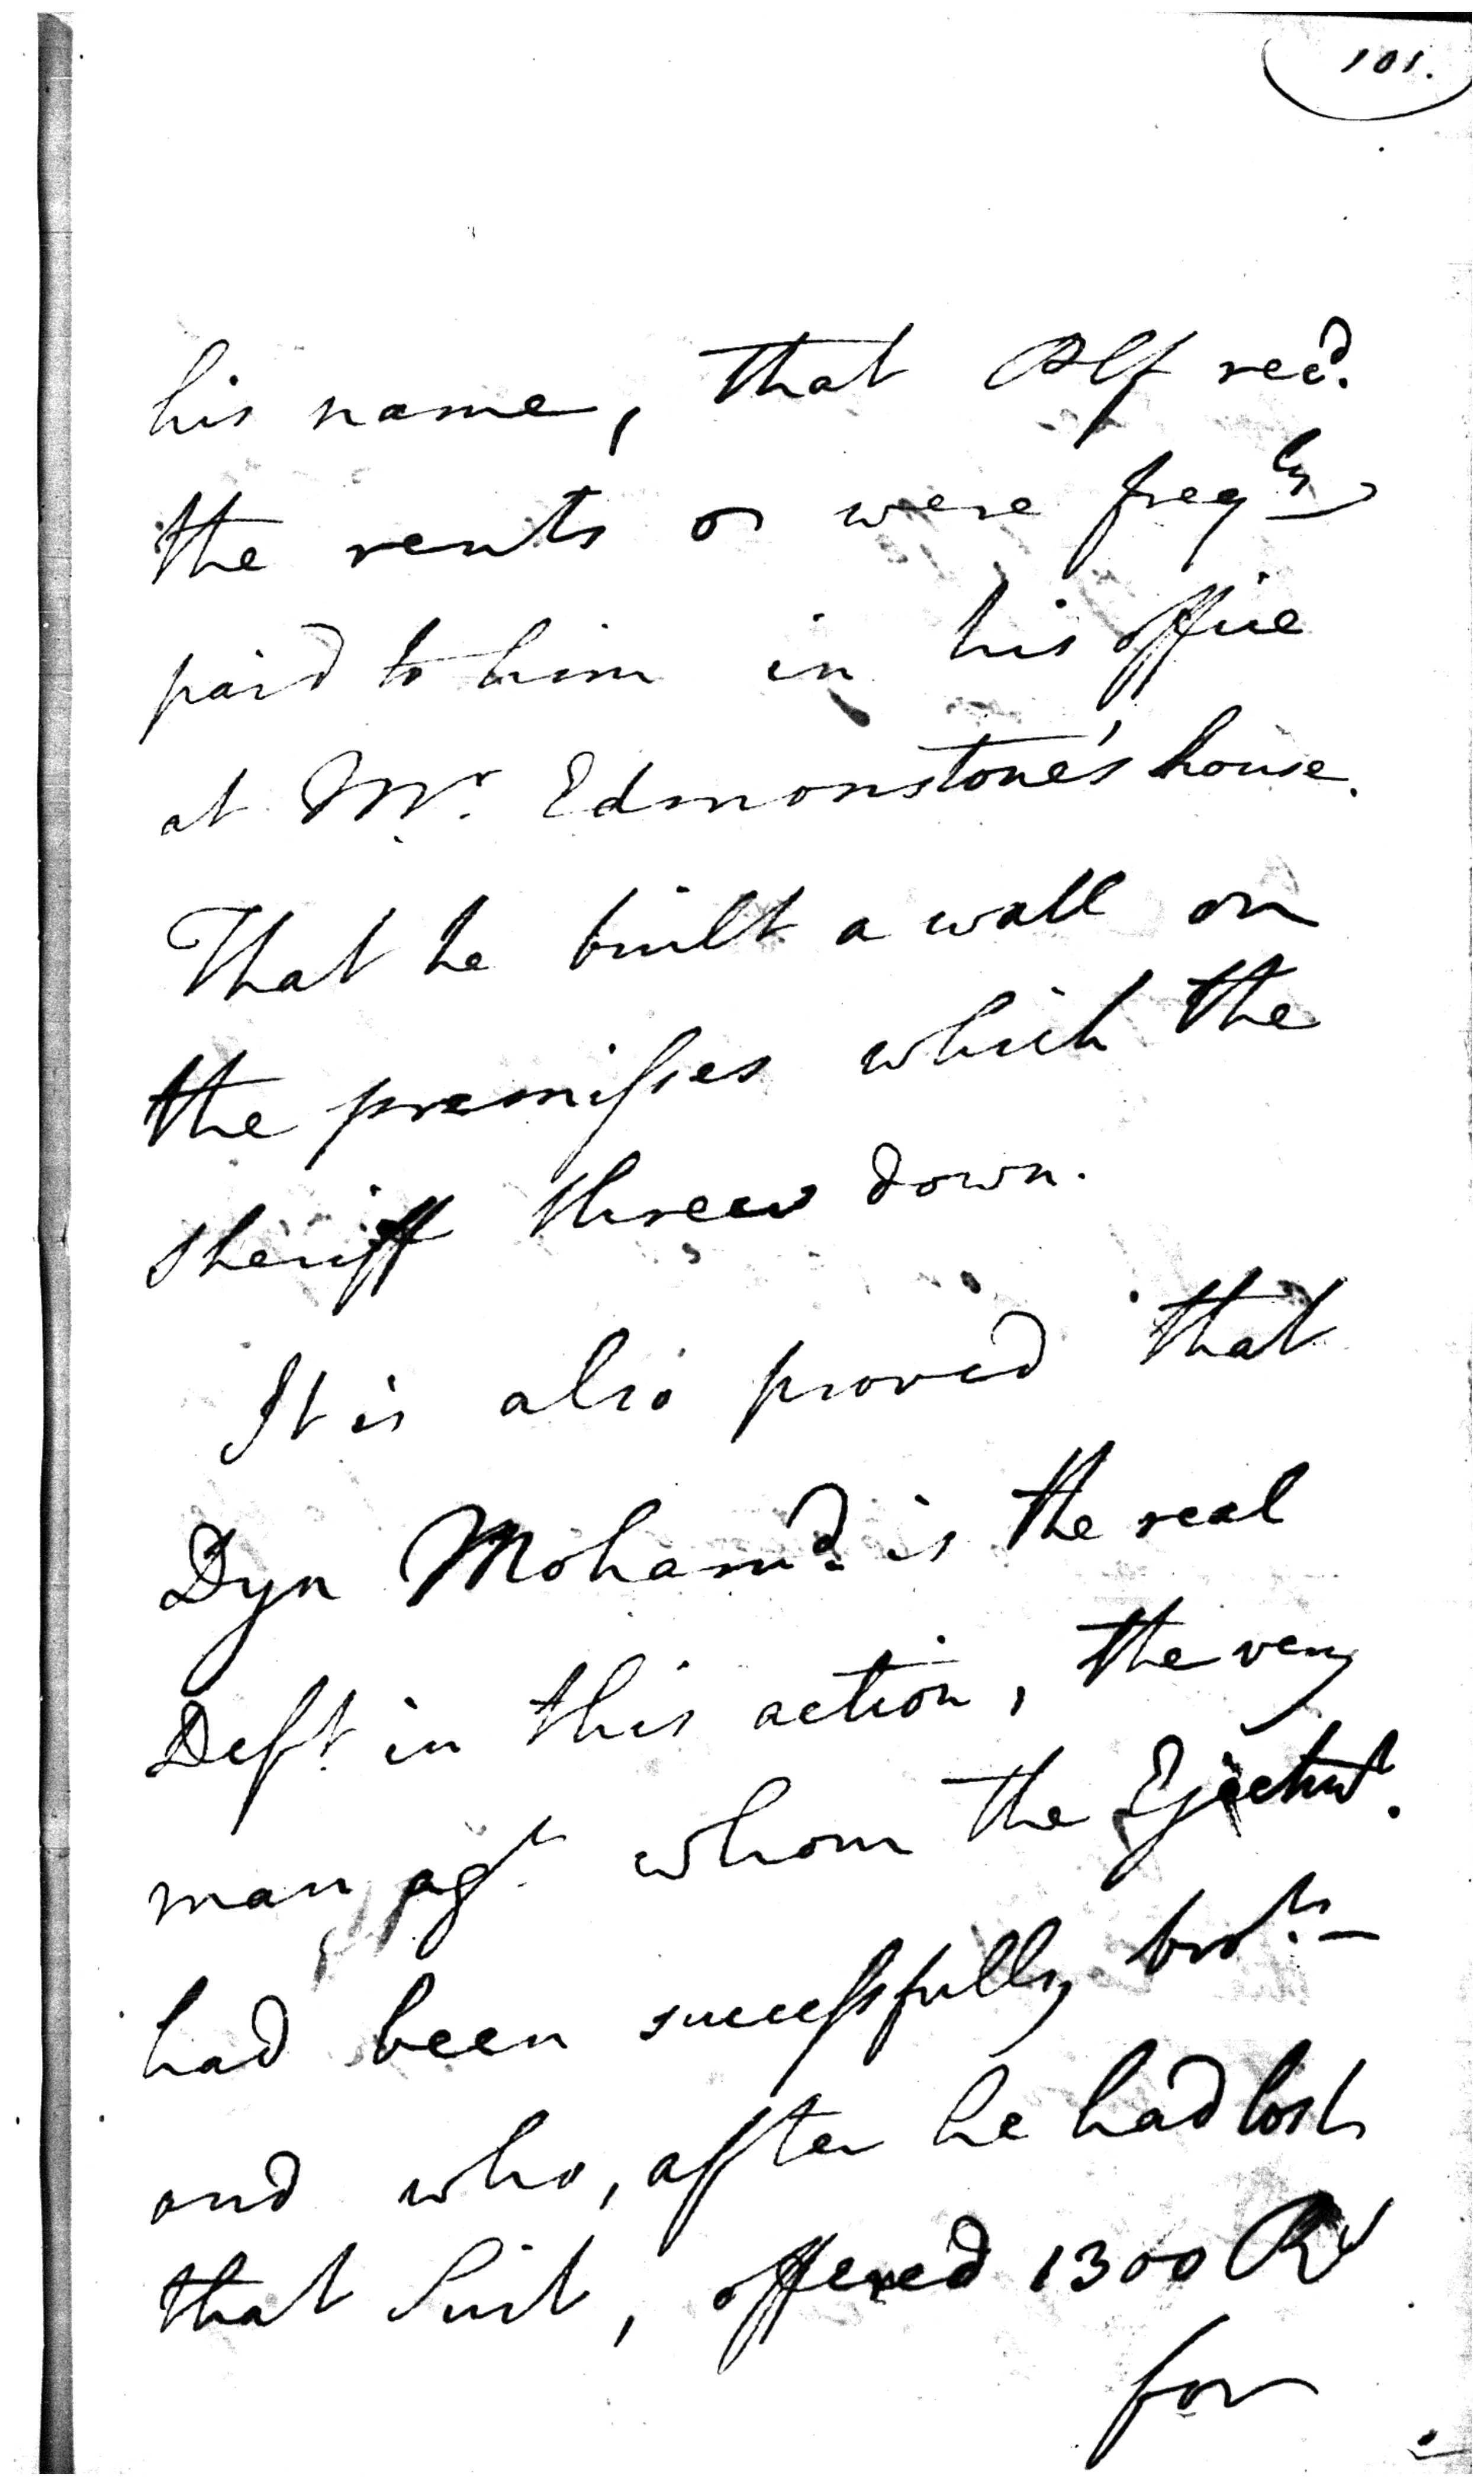 101.
his name, that Plf recd.
the rents or were freqly
paid to him in his office
at Mr. Edmonstone's house.
That he built a wall on
the premisses which the
Sheriff threw down.
It is also proved that
Dyn Mohamd. is the real
Deft. in this action, the very
man agt. whom the Ejectmt.
had been successfully brot. —
and who, after he had lost
that Suit, offered 1300 Rs
for